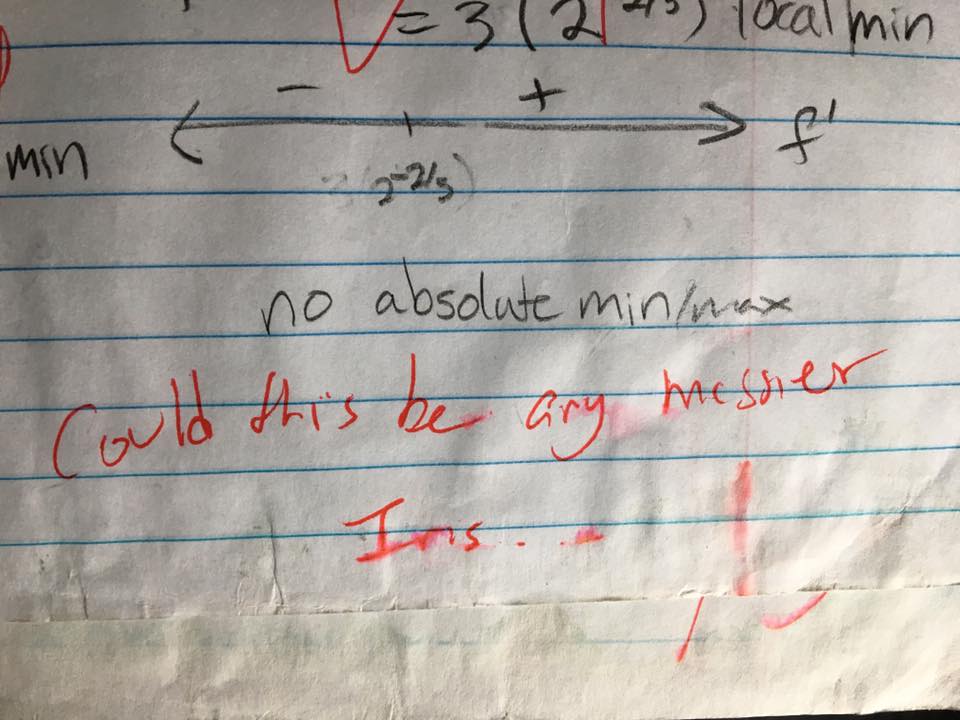 = 3 (2^-2/3) local min
- +
min f'
2^-2/3
no absolute min/max
Could this be any messier